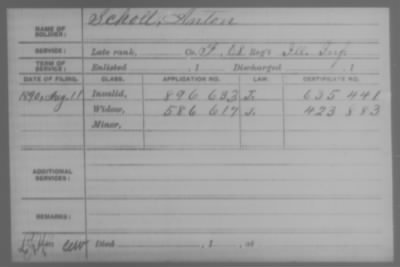 NAME OF SOLDIER: Scholl, Anton
SERVICE: Late rank, Co. F, Reg't Ill. Inf.
TERM OF SERVICE: Enlisted , 1 Discharged , 1
DATE OF FILING. CLASS. APPLICATION NO. LAW. CERTIFICATE NO.
1890, Aug. 11 Invalid, 896 633 J. 635 441
Widow, 586 617 J. 423 883
Minor,
ADDITIONAL SERVICES:
REMARKS:
Died , 1 , at